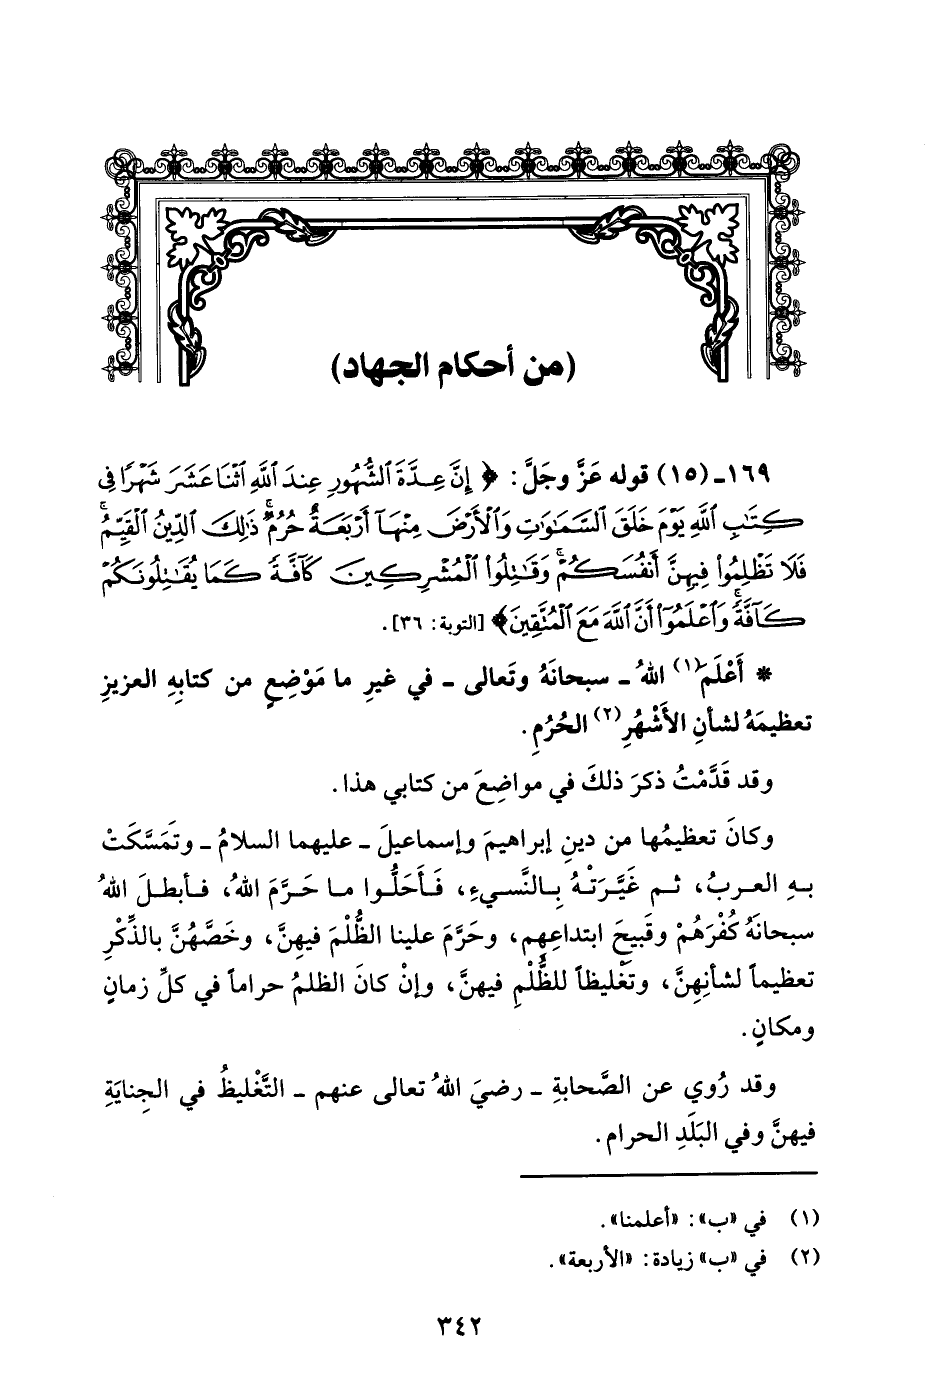 (من أحكام الجهاد)
١٦٩ـ (١٥) قوله عَزَّ وجَلَّ: ﴿ إِنَّ عِدَّةَ ٱلشُّهُورِ عِندَ ٱللَّهِ ٱثْنَا عَشَرَ شَهْرًا فِى
كِتَٰبِ ٱللَّهِ يَوْمَ خَلَقَ ٱلسَّمَٰوَٰتِ وَٱلْأَرْضَ مِنْهَآ أَرْبَعَةٌ حُرُمٌ ۚ ذَٰلِكَ ٱلدِّينُ ٱلْقَيِّمُ ۚ
فَلَا تَظْلِمُوا۟ فِيهِنَّ أَنفُسَكُمْ ۚ وَقَٰتِلُوا۟ ٱلْمُشْرِكِينَ كَآفَّةً كَمَا يُقَٰتِلُونَكُمْ
كَآفَّةً ۚ وَٱعْلَمُوٓا۟ أَنَّ ٱللَّهَ مَعَ ٱلْمُتَّقِينَ﴾ [التوبة: ٣٦].
* أَعْلَمَ(١) اللهُ ـ سبحانَهُ وتَعالى ـ في غيرِ ما مَوْضِعٍ من كتابِهِ العزيزِ
تعظيمَهُ لشأنِ الأَشْهُرِ(٢) الحُرُمِ.
وقد قَدَّمْتُ ذكرَ ذلكَ في مواضِعَ من كتابي هذا.
وكانَ تعظيمُها من دينِ إبراهيمَ وإسماعيلَ ـ عليهما السلامُ ـ وتَمَسَّكَتْ
بهِ العربُ، ثم غَيَّرَتْهُ بالنَّسيءِ، فَأَحَلُّوا ما حَرَّمَ اللهُ، فأبطلَ اللهُ
سبحانَهُ كُفْرَهُمْ وقَبيحَ ابتداعِهِم، وحَرَّمَ علينا الظُّلْمَ فيهِنَّ، وخَصَّهُنَّ بالذِّكْرِ
تعظيماً لشأنِهِنَّ، وتَغْليظاً للظُّلْمِ فيهنَّ، وإنْ كانَ الظلمُ حراماً في كلِّ زمانٍ
ومكانٍ.
وقد رُوي عن الصَّحابةِ ـ رضيَ اللهُ تعالى عنهم ـ التَّغْليظُ في الجِنايَةِ
فيهنَّ وفي البَلَدِ الحرام.
(١) في «ب»: «أعلمنا».
(٢) في «ب» زيادة: «الأربعة».
٣٤٢